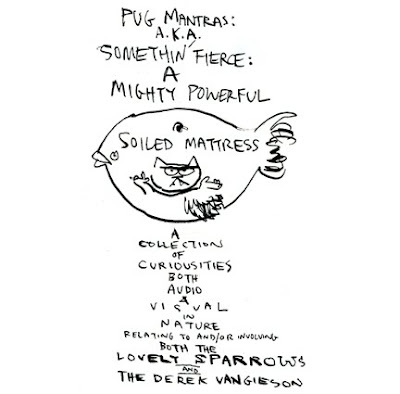 PUG MANTRAS:
A.K.A.
SOMETHIN' FIERCE:
A
MIGHTY POWERFUL
SOILED MATTRESS
A
COLLECTION
OF
CURIOUSITIES
BOTH
AUDIO
&
VISUAL
IN
NATURE
RELATING TO AND/OR INVOLVING
BOTH THE
LOVELY SPARROWS
AND
THE DEREK VANGIESON